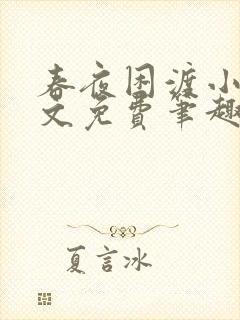 春夜困渡小
文免费笔趣
夏言冰